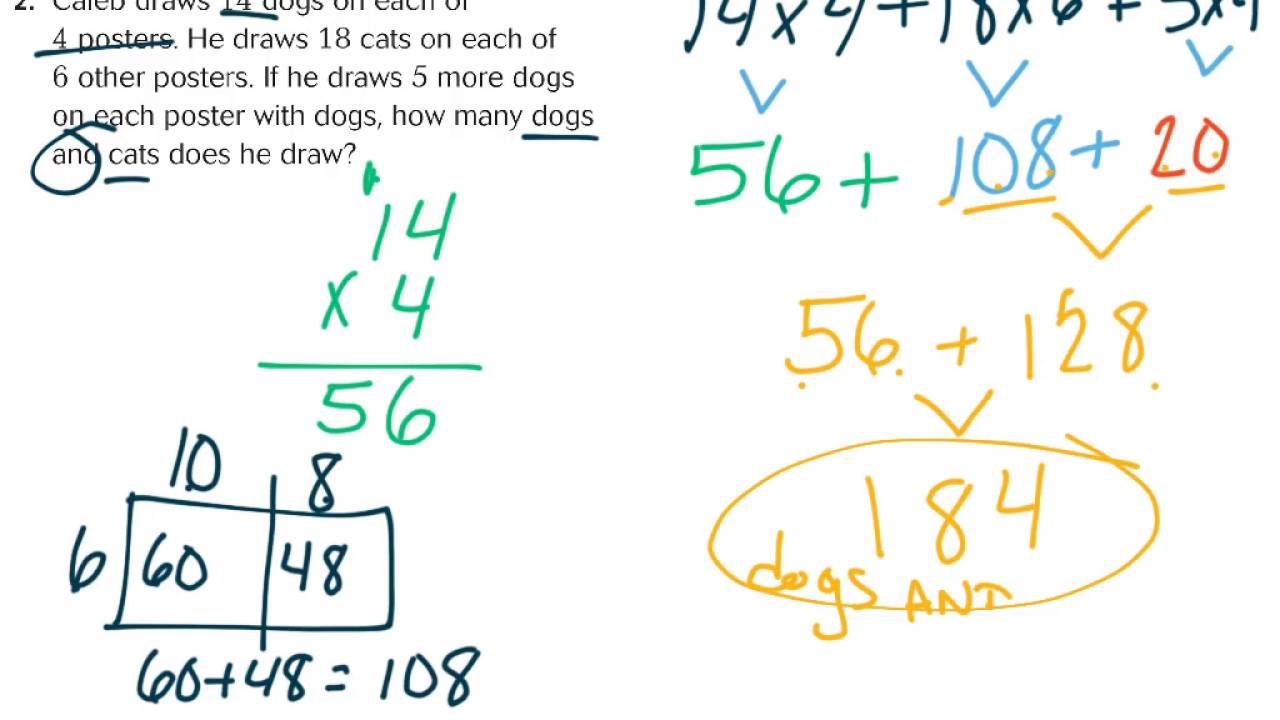 2. Caleb draws 14 dogs on each of
4 posters. He draws 18 cats on each of
6 other posters. If he draws 5 more dogs
on each poster with dogs, how many dogs
and cats does he draw?
14
x 4
56
10 8
6 60 48
60+48 = 108
14 x 4 + 18 x 6 + 5 x 4
56 + 108 + 20
56 + 128
184
dogs AND